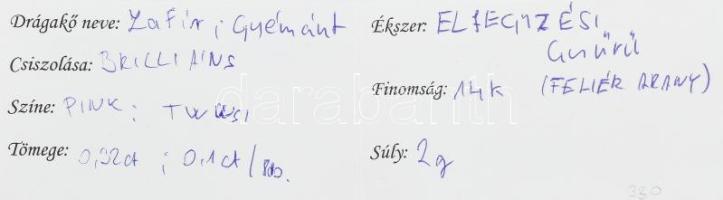 Drágakő neve: Zafír ; Gyémánt
Csiszolása: BRILLIÁNS
Színe: PINK ;
Tömege: 0,32ct ; 0,1ct/
Ékszer: ELJEGYZÉSI
Gyűrű
Finomság: 14k (FEHÉR ARANY)
Súly: 2g
darabanth
380